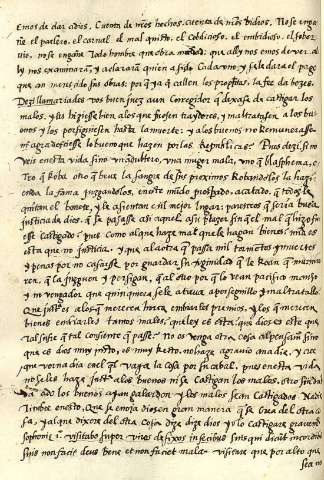 emos de dar a dios. Cuenta de nr̃os hechos, cuenta de nr̃os vidios. No se enga
ñe el parlero, el carnal el mal quisto, el cobdicioso, el embidioso, el sober
vio, no se engañe todo hombre que obra maldad: que alli y nos emos de ver. al
ly nos examinarã, y aclararã quien a sido Cada vno y se le dara el pago
que an merecido sus obras: por q̃ ya q̃ callen los prophetas, la fee da bozes.
llamariades vos buen juez a un Corregidor q̃ dexase de castigar los
malos, y les hiziesse bien a los que fuesen traydores, y maltratasen a los bu
enos y los persiguiesen hasta la muerte: y a los buenos no Remunerase
ni agradeciesse lo bueno que hazen por las Republicas? Pues dezi, si no
veis en esta vida sino vn adultero, vna muger mala, vno q̃ blasphema, o
tro q̃ Roba otro q̃ beue la sangre de sus proximos Robandoles la hazi
enda, juzgandolos, en este mũdo prosperado, acatado, q̃ todos le
quitan el bonete, y le asientan en el mejor lugar: pareceros q̃ seria buena
justicia de dios. q̃ se pasasse asi aquel, asi plazer sin q̃ el mal q̃ hizo fu
ese castigado: pues como al que haze mal que le hagan bienes mia es
esta que no justicia. y que al otro q̃ passa mil tormẽtos y muertes
y penas por no casarse por guardar su virginidad q̃ le
ren, q̃ la juzguen y persigan, q̃ al otro por q̃ lo vean pacifico manso
y no vengador que quin quiera se le atreua a perseguillo y maltratallo
Que just es a los q̃ merecen hirca embiarles premios, y los q̃ merecen
bienes embiarles tantos males, que ley es esta que dios es este que
tal sufre q̃ tal consiente q̃ passe. No os venga otra cosa al pensamiẽ sino
que es dios muy justo, es muy Recto, no haze agrauio a nadie, y cree
que verna dia en el q̃l vaya la cosa por su cabal, pues en esta vida
no se les haze just a los buenos ni se castigan los malos, otro siendo
ya do los buenos ayan galardon y los malos sean castigados Nadi
tinbre en esto, Que se enoja dios en gran manera q̃ se
sa, y al que dixere de otra Cosa dize dize dios yo lo castigare grauemẽ
sophonie 1º visitabo super viros defixos in fecibus suis qui dicũt in cordibus
suis non faciet deus bene et non faciet male visitare que por alto que
sea n